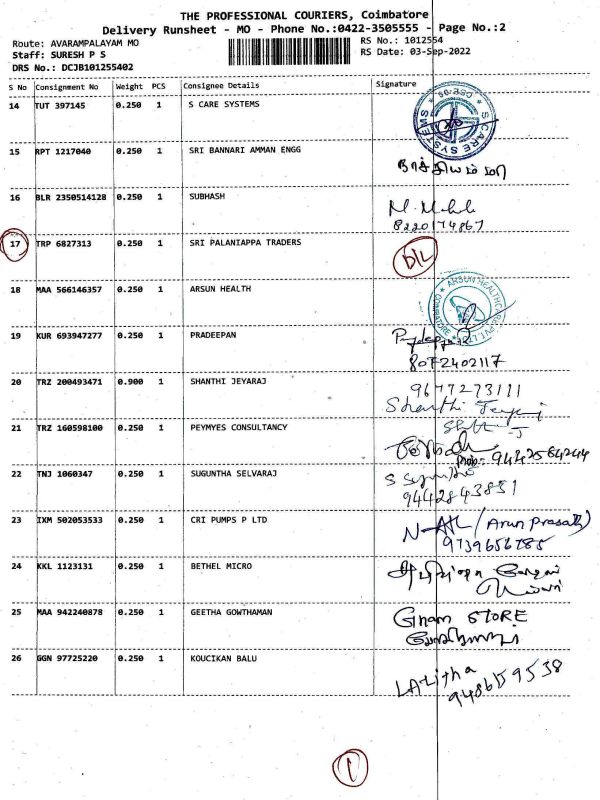 THE PROFESSIONAL COURIERS, Coimbatore
Delivery Runsheet - MO - Phone No.:0422-3505555 - Page No.:2
Route: AVARAMPALAYAM MO
RS No.: 1012554
Staff: SURESH P S
RS Date: 03-Sep-2022
DRS No.: DCJB101255402
S No Consignment No Weight PCS Consignee Details Signature
14 TUT 397145 0.250 1 S CARE SYSTEMS
S CARE SYSTEMS
15 RPT 1217040 0.250 1 SRI BANNARI AMMAN ENGG
16 BLR 2350514128 0.250 1 SUBHASH
8220174867
17 TRP 6827313 0.250 1 SRI PALANIAPPA TRADERS
D/L
18 MAA 566146357 0.250 1 ARSUN HEALTH
ARSUN HEALTHCARE PVT LTD
COIMBATORE
19 KUR 693947277 0.250 1 PRADEEPAN
8072402117
20 TRZ 200493471 0.900 1 SHANTHI JEYARAJ
9677273111
Shanthi Jeyaraj
21 TRZ 160598100 0.250 1 PEYMYES CONSULTANCY
Mob: 9442564244
22 TNJ 1060347 0.250 1 SUGUNTHA SELVARAJ
9442843851
23 IXM 502053533 0.250 1 CRI PUMPS P LTD
(Arun Prasath)
9739656785
24 KKL 1123131 0.250 1 BETHEL MICRO
25 MAA 942240878 0.250 1 GEETHA GOWTHAMAN
Gnam STORE
26 GGN 97725220 0.250 1 KOUCIKAN BALU
LAlitha
9486159538
1